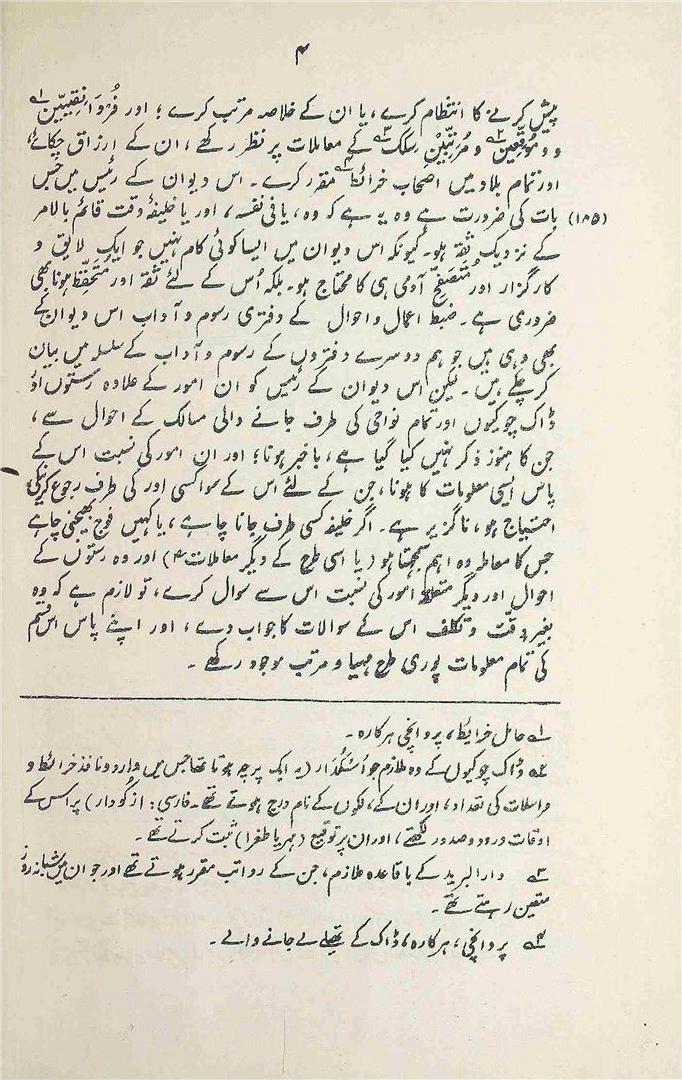 ۴
پیش کرنے کا انتظام کرے، یا ان کے خلاصہ مرتب کرے؛ اور فُرُوَانقِیّین۱؎
و مُوَقِّعین۲؎ و مُرَتِّبِیْن سِکَک۳؎ کے معاملات پر نظر رکھے، ان کے ارزاق چکائے،
اور تمام بلاد میں اصحاب خرائط۴؎ مقرر کرے۔ اس دیوان کے رئیس میں جس
(۱۸۵) بات کی ضرورت ہے وہ یہ ہے کہ وہ، یا فی نفسہ، اور یا خلیفۂ وقت قائم بالامر
کے نزدیک ثقہ ہو۔ کیونکہ اس دیوان میں ایسا کوئی کام نہیں جو ایک لایق و
کارگزار اور مُتَصَفِّح آدمی ہی کا محتاج ہو۔ بلکہ اُس کے لئے ثقہ اور مُتَحَفِّظ ہونا بھی
ضروری ہے۔ ضبط اعمال و احوال کے دفتری رسوم و آداب اس دیوان کے
بھی وہی ہیں جو ہم دوسرے دفتروں کے رسوم و آداب کے سلسلہ میں بیان
کر چکے ہیں۔ لیکن اس دیوان کے رئیس کو ان امور کے علاوہ رستوں اور
ڈاک چوکیوں اور تمام نواحی کی طرف جانے والی مسالک کے احوال سے،
جن کا ہنوز ذکر نہیں کیا گیا ہے، باخبر ہونا؛ اور ان امور کی نسبت اس کے
پاس ایسی معلومات کا ہونا، جن کے لئے اس کے سوا کسی اور کی طرف رجوع کرنیکی
احتیاج ہو، ناگزیر ہے۔ اگر خلیفہ کسی طرف جانا چاہے، یا کہیں فوج بھیجنی چاہے
جس کا معاملہ وہ اہم سمجھتا ہو (یا اسی طرح کے دیگر معاملات ۴) اور وہ رستوں کے
احوال اور دیگر متعلقہ امور کی نسبت اس سے سوال کرے، تو لازم ہے کہ وہ
بغیر دقّت و تکلف اس کے سوالات کا جواب دے، اور اپنے پاس اس قسم
کی تمام معلومات پوری طرح مہیا و مرتب موجود رکھے۔
۱؎ حامل خرایط، پروانچی ہرکارہ۔
۲؎ ڈاک چوکیوں کے وہ ملازم جو اُسْکُدَار (یہ ایک پرچہ ہوتا تھا جس میں وارد و نافذ خرائط و
مراسلات کی تعداد، اور ان کے، لکوں کے نام درج ہوتے تھے۔ فارسی: از کُو دار) پر اس کے
اوقات درود و صدور لکھتے، اور ان پر توقیع (مہر یا طغرا) ثبت کرتے تھے۔
۳؎ دار البرید کے باقاعدہ ملازم، جن کے رواتب مقرر ہوتے تھے اور جو ان میں شبانہ روز
متعین رہتے تھے۔
۴؎ پروانچی، ہرکارہ، ڈاک کے تھیلے لے جانے والے۔